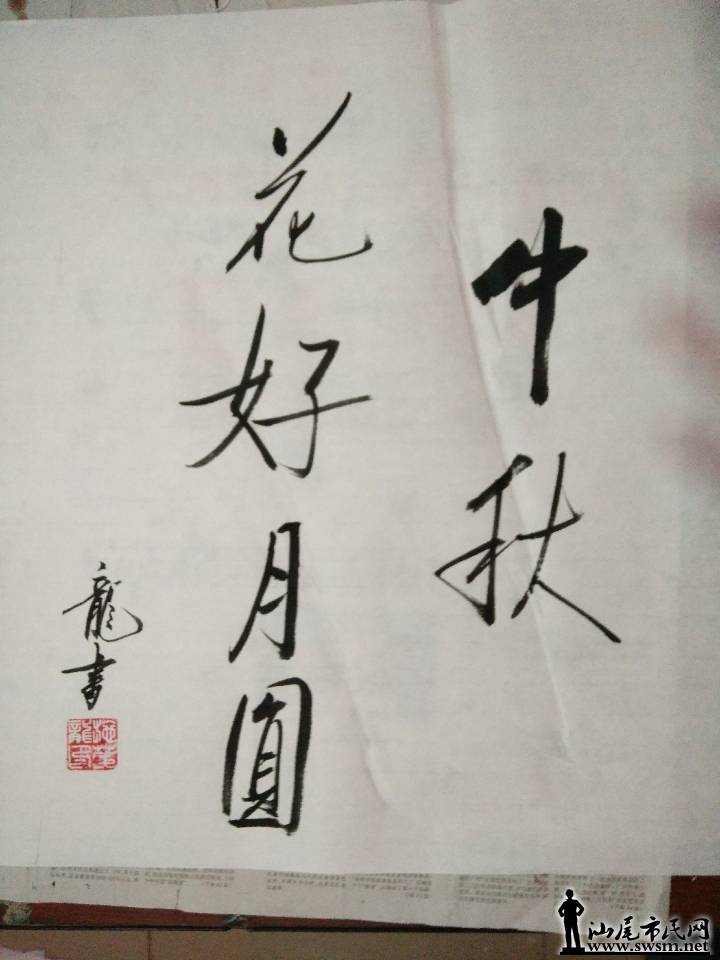 中秋
花好月圓
龍書
汕尾市民网
www.swsm.net